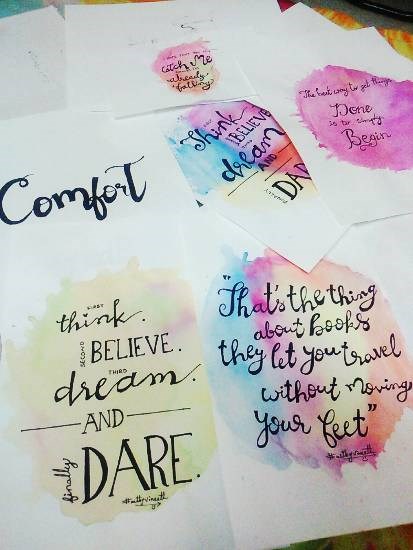 catch Me
already
falling
The best way to get things
Done
is to simply
Begin
FIRST
Think.
SECOND
BELIEVE
THIRD
dream
AND
FINALLY
DAR
Comfort
FIRST
think.
SECOND BELIEVE.
THIRD
dream.
AND
finally DARE.
"That's the thing
about Books
they let you travel
without Moving
your feet"